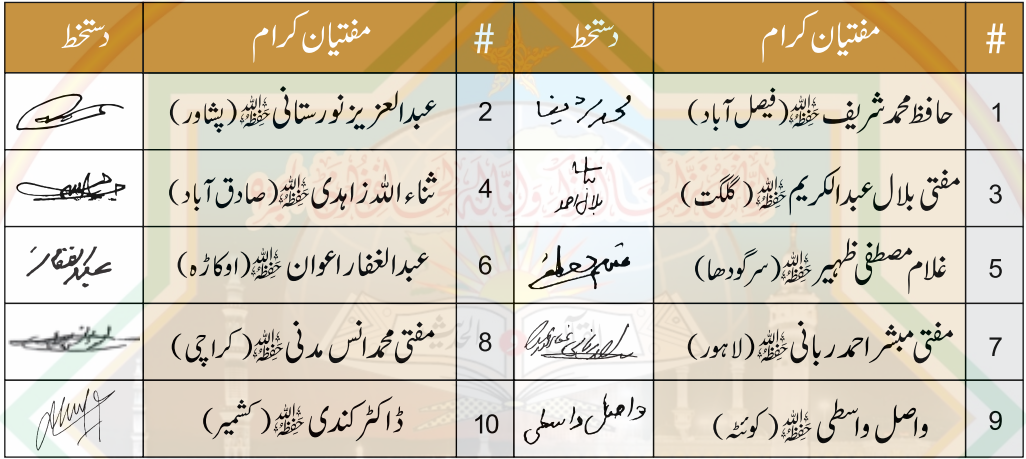 # مفتیان کرام دستخط # مفتیان کرام دستخط
1 حافظ محمد شریف حفظہ اللہ (فیصل آباد) 2 عبدالعزیز نورستانی حفظہ اللہ (پشاور)
3 مفتی بلال عبدالکریم حفظہ اللہ (گلگت) بلال احمد 4 ثناء اللہ زاہدی حفظہ اللہ (صادق آباد)
5 غلام مصطفی ظہیر حفظہ اللہ (سرگودھا) 6 عبدالغفار اعوان حفظہ اللہ (اوکاڑہ) عبدالغفار
7 مفتی مبشر احمد ربانی حفظہ اللہ (لاہور) 8 مفتی محمد انس مدنی حفظہ اللہ (کراچی)
9 واصل واسطی حفظہ اللہ (کوئٹہ) واصل واسطی 10 ڈاکٹر کندی حفظہ اللہ (کشمیر)